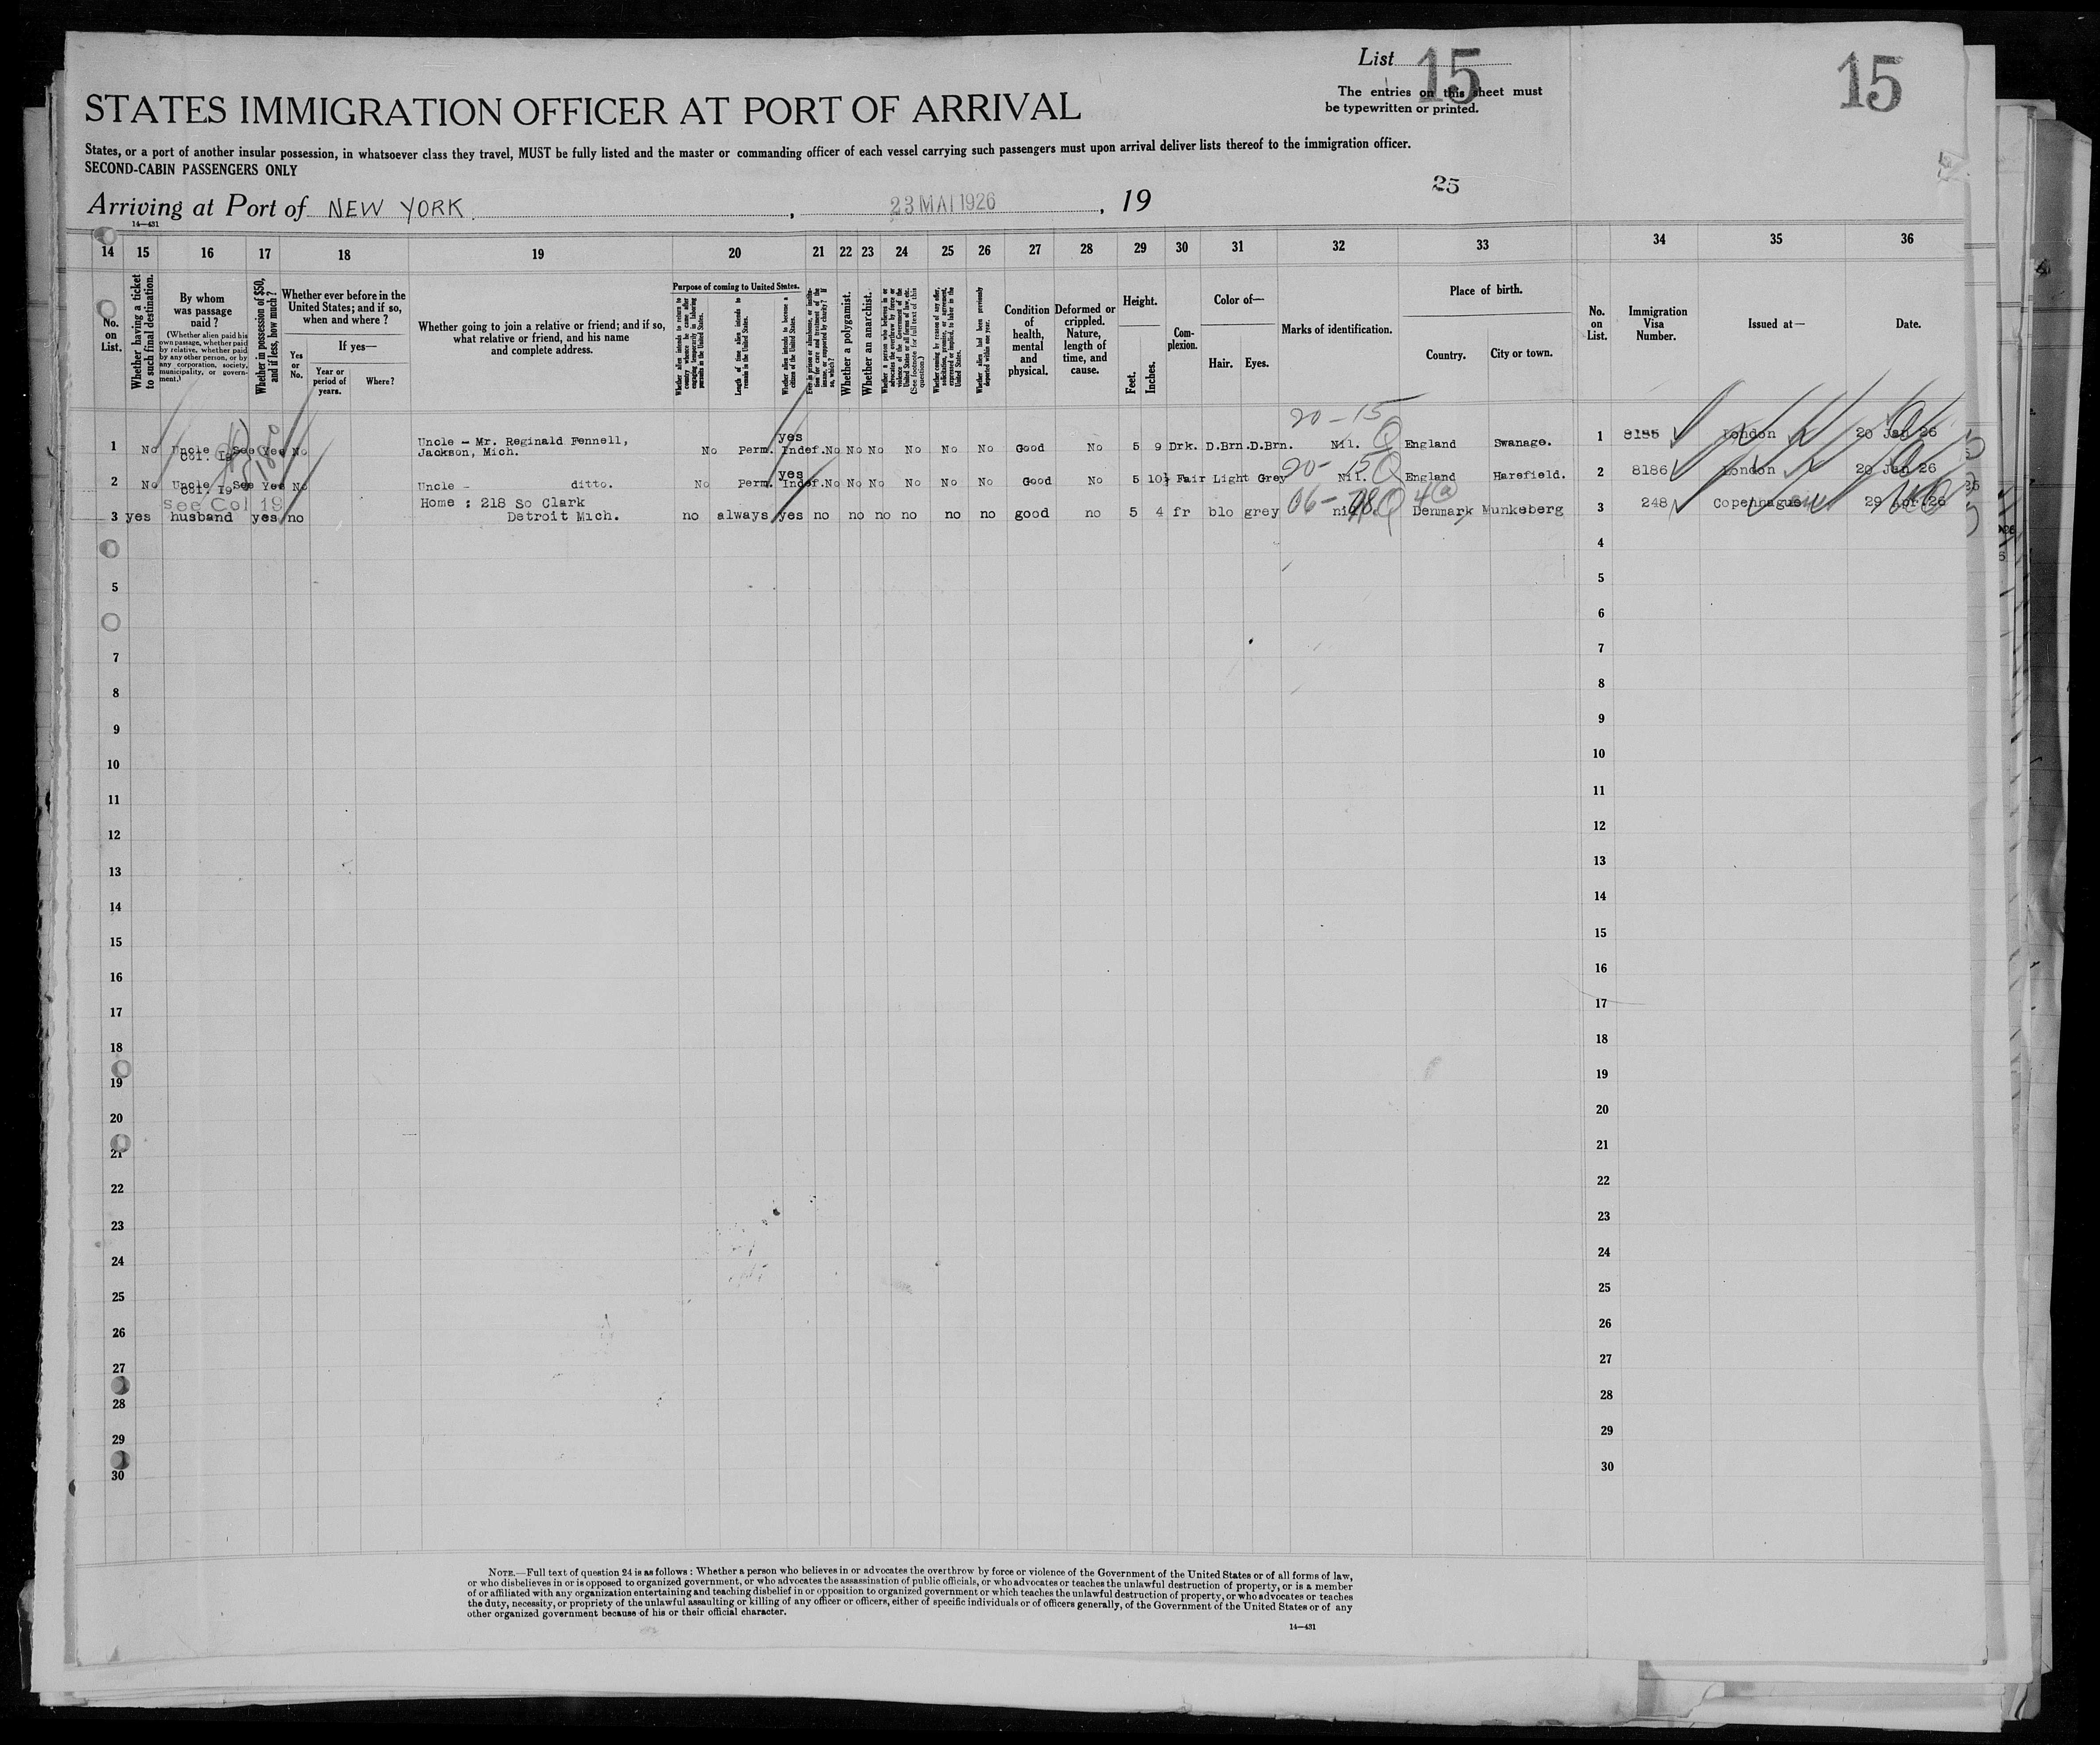 List 15
15
The entries on this sheet must
be typewritten or printed.
STATES IMMIGRATION OFFICER AT PORT OF ARRIVAL
States, or a port of another insular possession, in whatsoever class they travel, MUST be fully listed and the master or commanding officer of each vessel carrying such passengers must upon arrival deliver lists thereof to the immigration officer.
SECOND-CABIN PASSENGERS ONLY
25
Arriving at Port of NEW YORK, 23 MAI 1926, 19
14—431
14 15 16 17 18 19 20 21 22 23 24 25 26 27 28 29 30 31 32 33 34 35 36
No. on List.
Whether having a ticket to such final destination.
By whom was passage paid?
(Whether alien paid his own passage, whether paid by relative, whether paid by any other person, or by any corporation, society, municipality, or government.)
Whether in possession of $50, and if less, how much?
Whether ever before in the United States; and if so, when and where?
Yes or No.
If yes—
Year or period of years.
Where?
Whether going to join a relative or friend; and if so, what relative or friend, and his name and complete address.
Purpose of coming to United States.
Whether alien intends to return to country whence he came after engaging temporarily in laboring pursuits in the United States.
Length of time alien intends to remain in the United States.
Whether alien intends to become a citizen of the United States.
Ever in prison or almshouse, or institution for care and treatment of the insane, or supported by charity? If so, which?
Whether a polygamist.
Whether an anarchist.
Whether a person who believes in or advocates the overthrow by force or violence of the Government of the United States or all forms of law, etc. (See footnote for full text of this question.)
Whether coming by reason of any offer, solicitation, promise, or agreement, expressed or implied, to labor in the United States.
Whether alien had been previously deported within one year.
Condition of health, mental and physical.
Deformed or crippled. Nature, length of time, and cause.
Height.
Feet.
Inches.
Complexion.
Color of—
Hair. Eyes.
Marks of identification.
Place of birth.
Country. City or town.
No. on List.
Immigration Visa Number.
Issued at—
Date.
20-15
1 No Uncle See Col. 19 Yes No Uncle - Mr. Reginald Fennell, Jackson, Mich. No Perm. yes Indef. No No No No No No Good No 5 9 Drk. D.Brn. D.Brn. Nil. England Swanage. 1 8185 London 20 Jan 26
20-15
2 No Uncle See Col. 19 Yes No Uncle - ditto. No Perm. yes Indef. No No No No No No Good No 5 10½ Fair Light Grey Nil. England Harefield. 2 8186 London 20 Jan 26
see Col 19 Home : 218 So Clark 06-
3 yes husband yes no Detroit Mich. no always yes no no no no no no good no 5 4 fr blo grey Denmark Munkeberg 3 248 Copenhague 29 Apr 26
4
5 5
6
7 7
8 8
9 9
10 10
11 11
12 12
13 13
14 14
15 15
16 16
17 17
18 18
19 19
20 20
21 21
22 22
23 23
24 24
25 25
26 26
27 27
28 28
29 29
30 30
NOTE.—Full text of question 24 is as follows: Whether a person who believes in or advocates the overthrow by force or violence of the Government of the United States or of all forms of law,
or who disbelieves in or is opposed to organized government, or who advocates the assassination of public officials, or who advocates or teaches the unlawful destruction of property, or is a member
of or affiliated with any organization entertaining and teaching disbelief in or opposition to organized government or which teaches the unlawful destruction of property, or who advocates or teaches
the duty, necessity, or propriety of the unlawful assaulting or killing of any officer or officers, either of specific individuals or of officers generally, of the Government of the United States or of any
other organized government because of his or their official character.
14—431